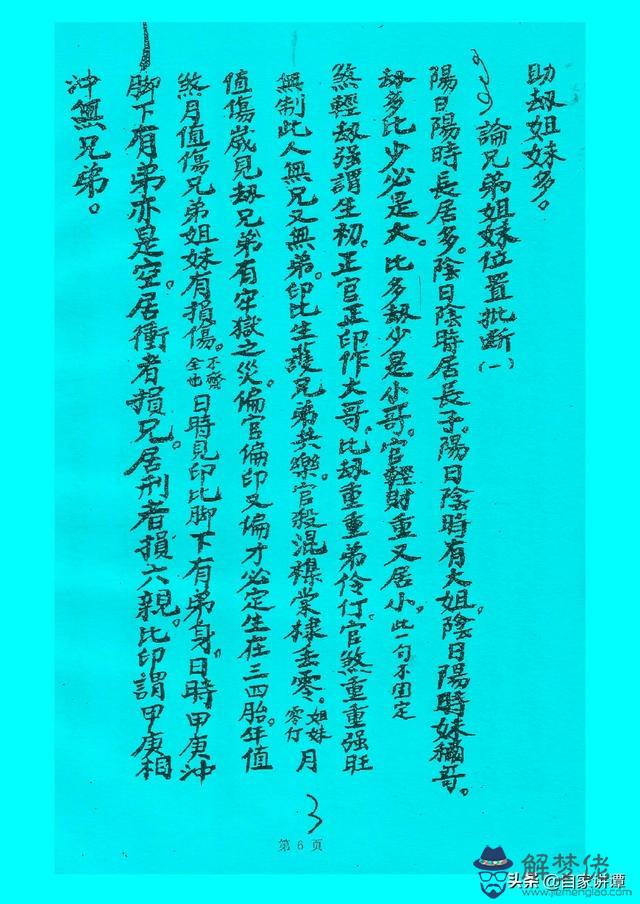 助刼姐妹多。
論兄弟姐妹位置批斷(一)
陽日陽時長居多。陰日陰時居長子。陽日陰時有大姐。陰日陽時妹稱哥。
刼多比少必是大。比多刼少是小哥。官輕財重又居小。此一句不固定
煞輕刼强謂生初。正官正印作大哥。比刼重重弟伶仃。官煞重重强旺
無制此人無兄又無弟。印比生護兄弟共樂。官殺混襍棠棣丢零。姐妹零仃月
值傷歲見刼兄弟有牢獄之災。偏官偏印又偏才必定生在三四胎。年值
煞月值傷兄弟姐妹有損傷。不齊全也日時見印比脚下有弟身。日時甲庚沖
脚下有弟亦是空。居衝者損兄。居刑者損六親。比印謂甲庚相
沖無兄弟。
3
第 6 页
解梦佬
www.jiemenglao.com
头条 @自家讲覃